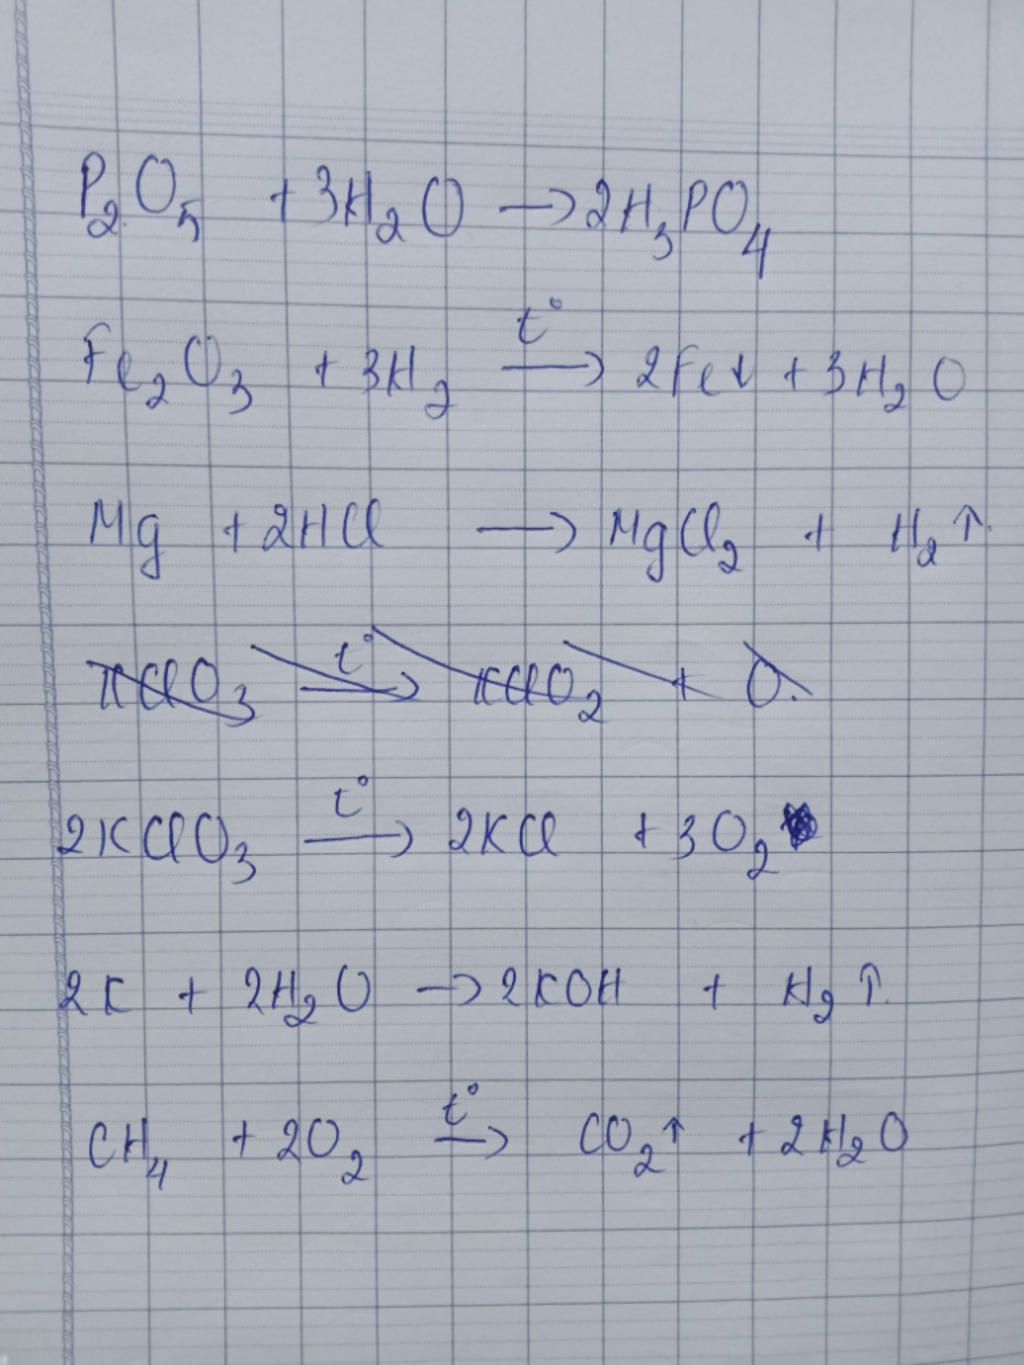 P₂O₅ + 3H₂O → 2H₃PO₄
Fe₂O₃ + 3H₂ —t°→ 2Fe↓ + 3H₂O
Mg + 2HCl → MgCl₂ + H₂↑
KClO₃ —t°→ KClO₂ + O.
2KClO₃ —t°→ 2KCl + 3O₂
2K + 2H₂O → 2KOH + H₂↑
CH₄ + 2O₂ —t°→ CO₂↑ + 2H₂O